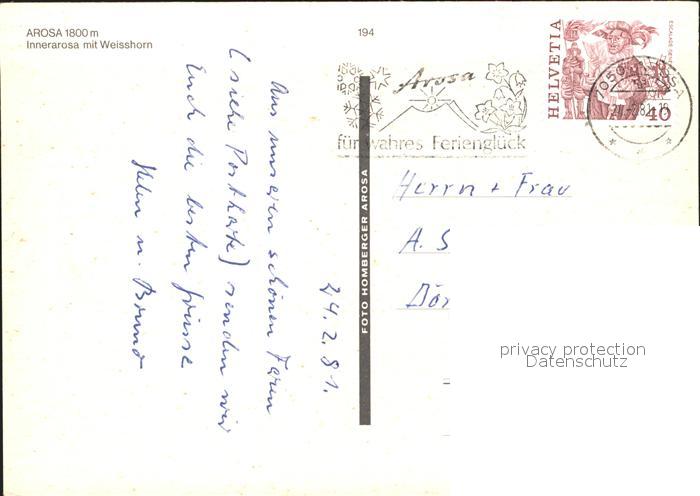 AROSA 1800 m
Innerarosa mit Weisshorn
194
HELVETIA
40
Arosa
für wahres Ferienglück
FOTO HOMBERGER AROSA
24.2.81.
Aus unseren schönen Ferien
(siehe Postkarte) senden wir
Euch die besten Grüsse
Helen u. Bruno
Herrn + Frau
A. S
Dör
privacy protection
Datenschutz